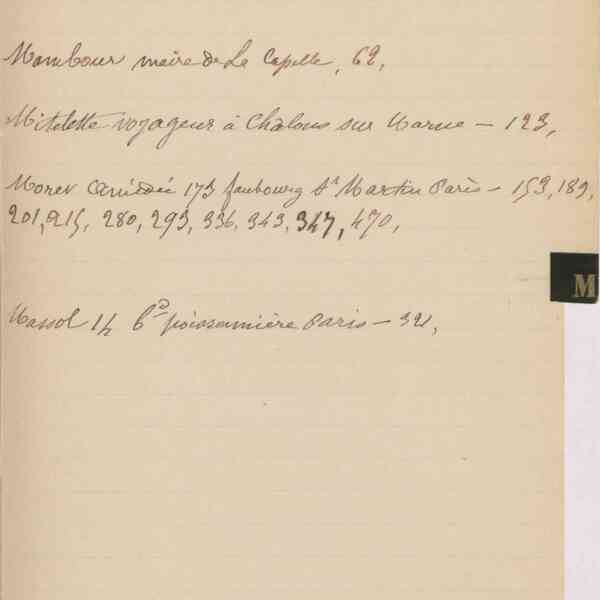 Mambour maire de La Capelle, 62,
Mitelette voyageur à Châlons sur Marne — 123,
Moret Amédée 173 faubourg St Martin Paris — 153, 189,
201, 215, 280, 293, 336, 343, 347, 470,
M
Massol 14 bd poissonnière Paris — 321,